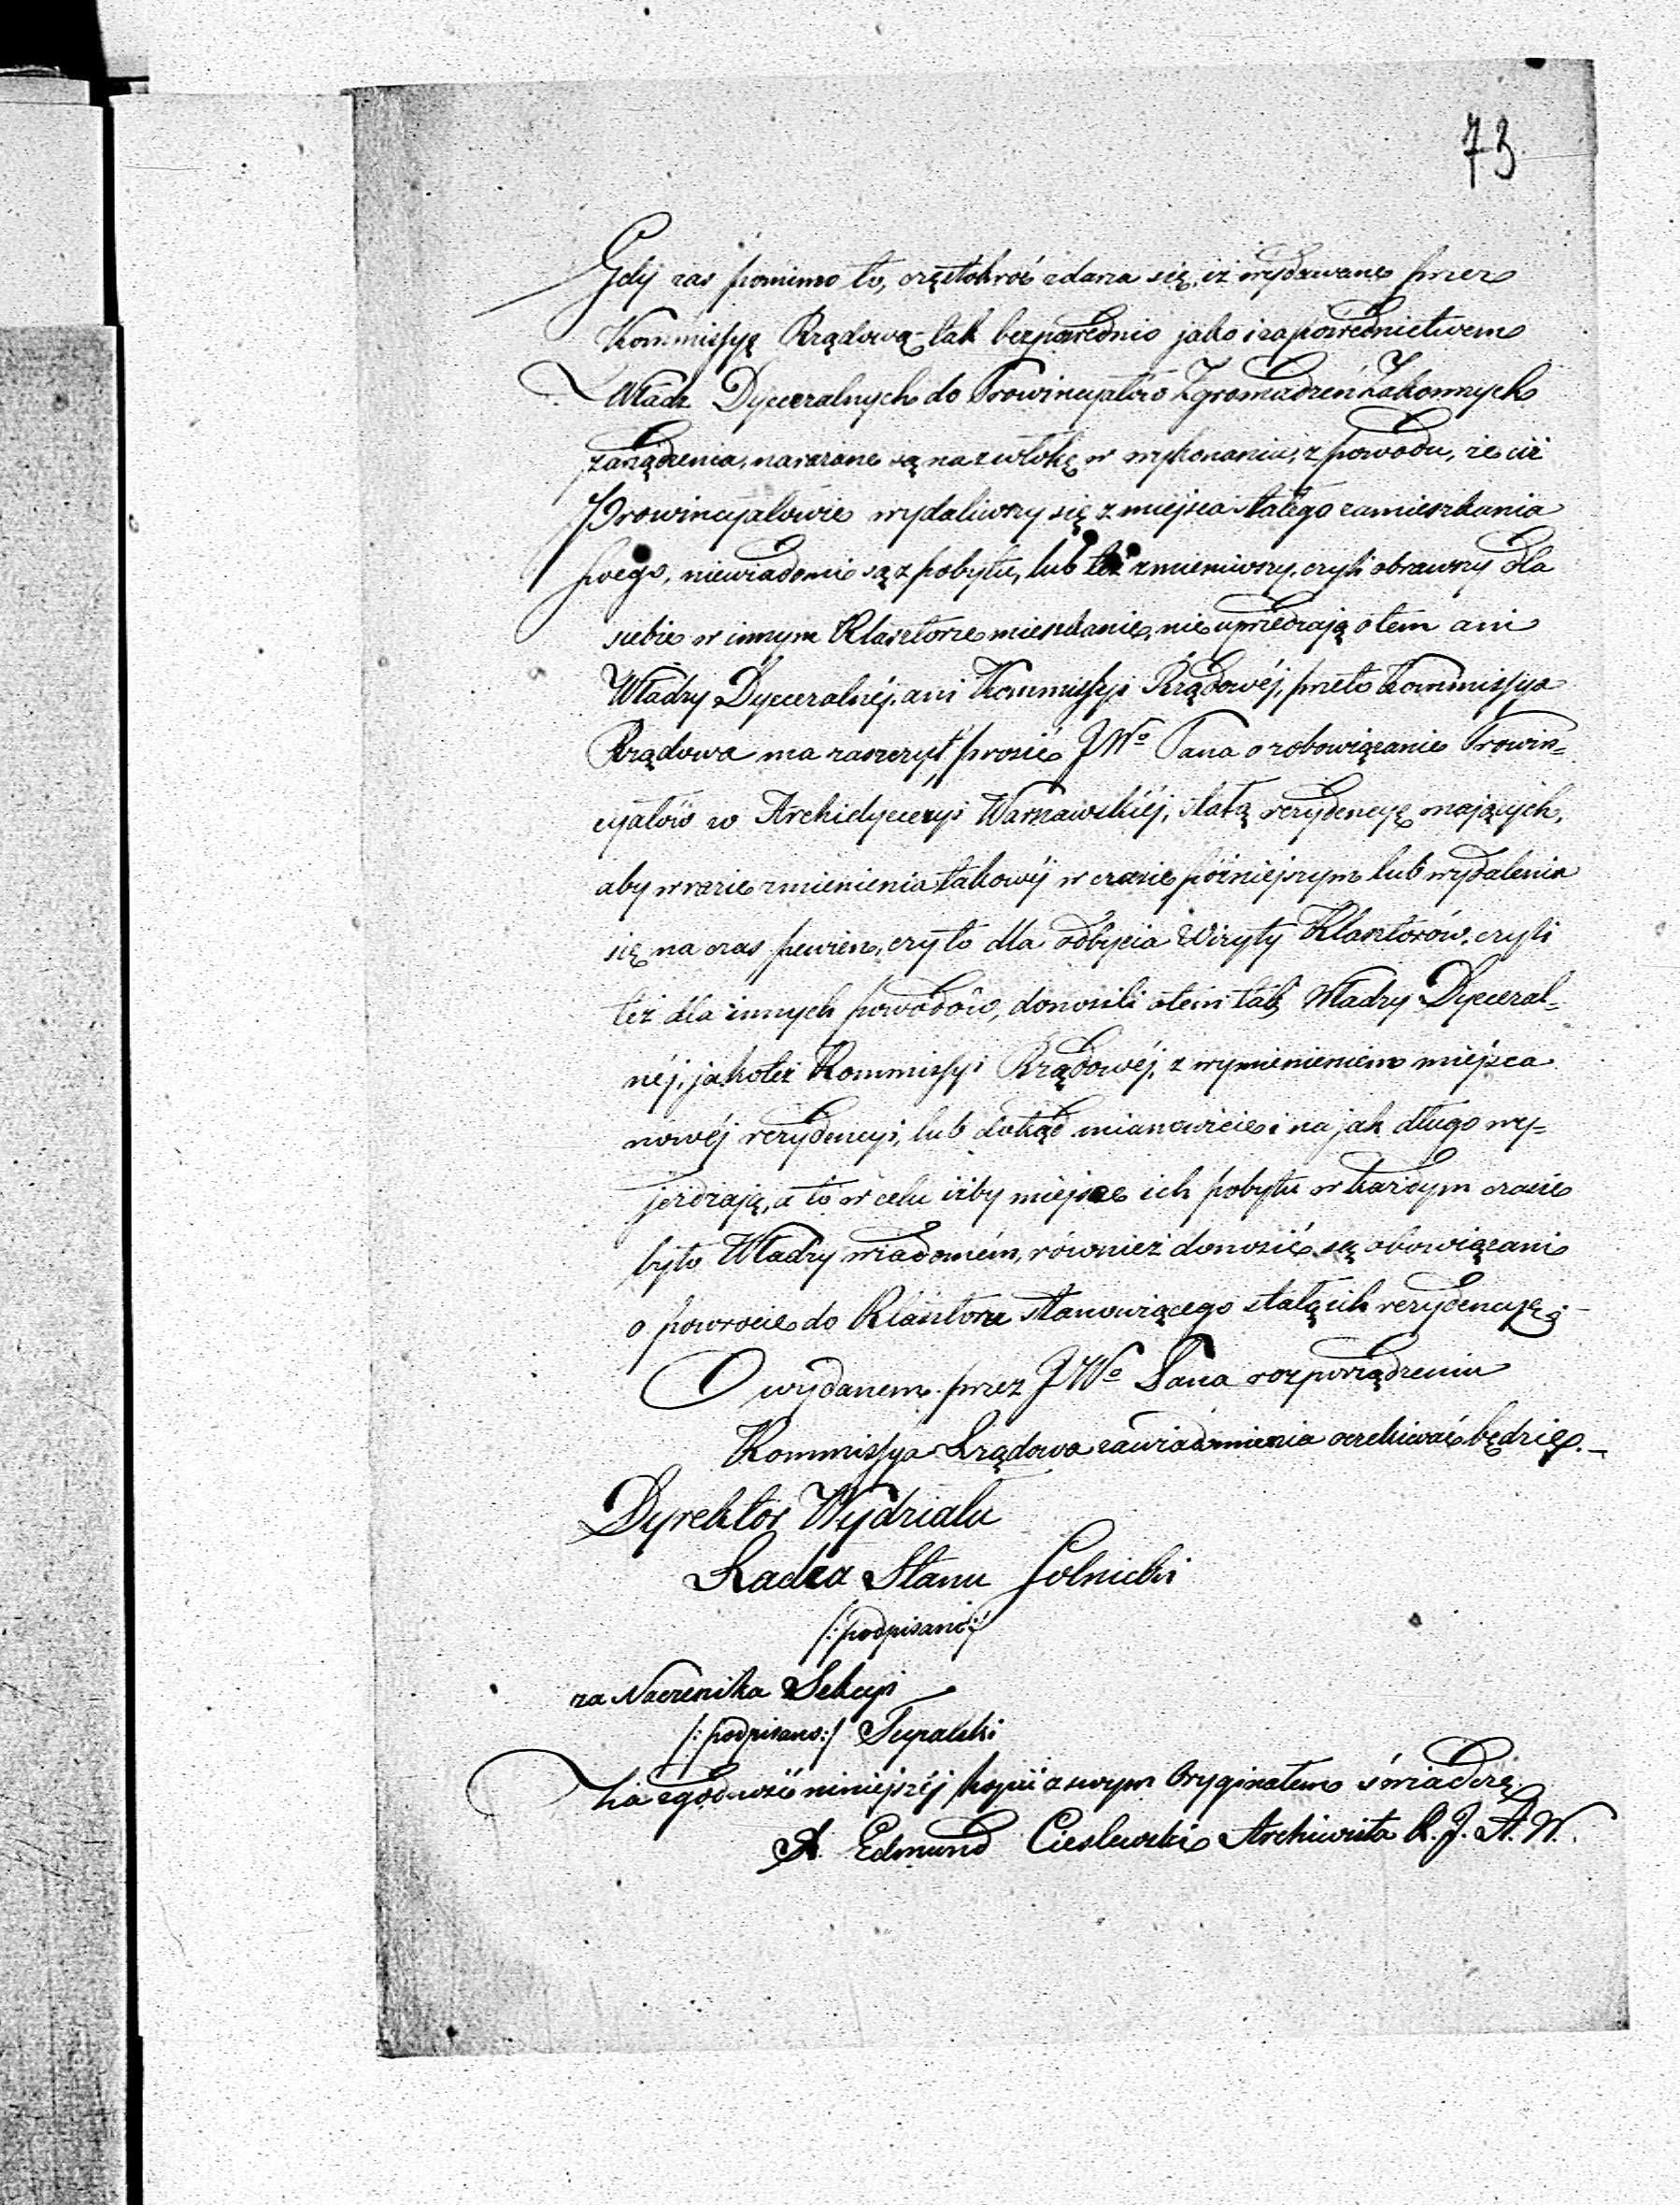 73
Gdy zas pomimo to, częstokroć zdarza się, iż wydawane przez
Kommissyę Rządową tak bezpośrednio jako i za pośrednictwem
Władz Dyecezalnych do Prowincyałów Zgromadzeń Zakonnych
zarządzenia, narażane są na zwłokę w wykonaniu, z powodu, że ciż
Prowincyałowie wydaliwszy się z miejsca stałego zamieszkania
swego, niewiadomi są z pobytu, lub też zmieniwszy, czyli obrawszy dla
siebie w innym Klasztorze mieszkanie, nie uprzedzają o tem ani
Władzy Dyecezalnéj, ani Kommissyi Rządowéj, przeto Kommissya
Rządowa ma zaszczyt prosić JWo Pana o zobowiązanie Prowin=
cyałów w Archidyecezyi Warszawskiéj, stałą rezydencyę mających,
aby w razie zmienienia takowéj w czasie późniejszym lub wydalenia
się na czas pewien, czy to dla odbycia Wizyty Klasztorów, czyli
też dla innych powodów, donosili o tem tak Władzy Dyecezal=
néj, jakoteż Kommissyi Rządowéj, z wymienieniem miejsca
nowéj rezydencyi, lub dokąd mianowicie i na jak długo wy=
jeżdzają, a to w celu iżby miejsce ich pobytu w każdym czasie
było Władzy wiadomém, również donosić są obowiązani
o powrocie do Klasztoru stanowiącego stałą ich rezydencyę.
O wydanem przez JWo Pana rozporządzeniu
Kommissya Rządowa zawiadomienia oczekiwać będzie.
Dyrektor Wydziału
Radca Stanu Solnicki
/:podpisano:/
za Naczelnika Sekcyi
/:podpisano:/ Tupalski
Za zgodność niniejszéj kopii z swym Oryginałem świadczę
X. Edmund Cieslewski Archiwista K. J. A. W.